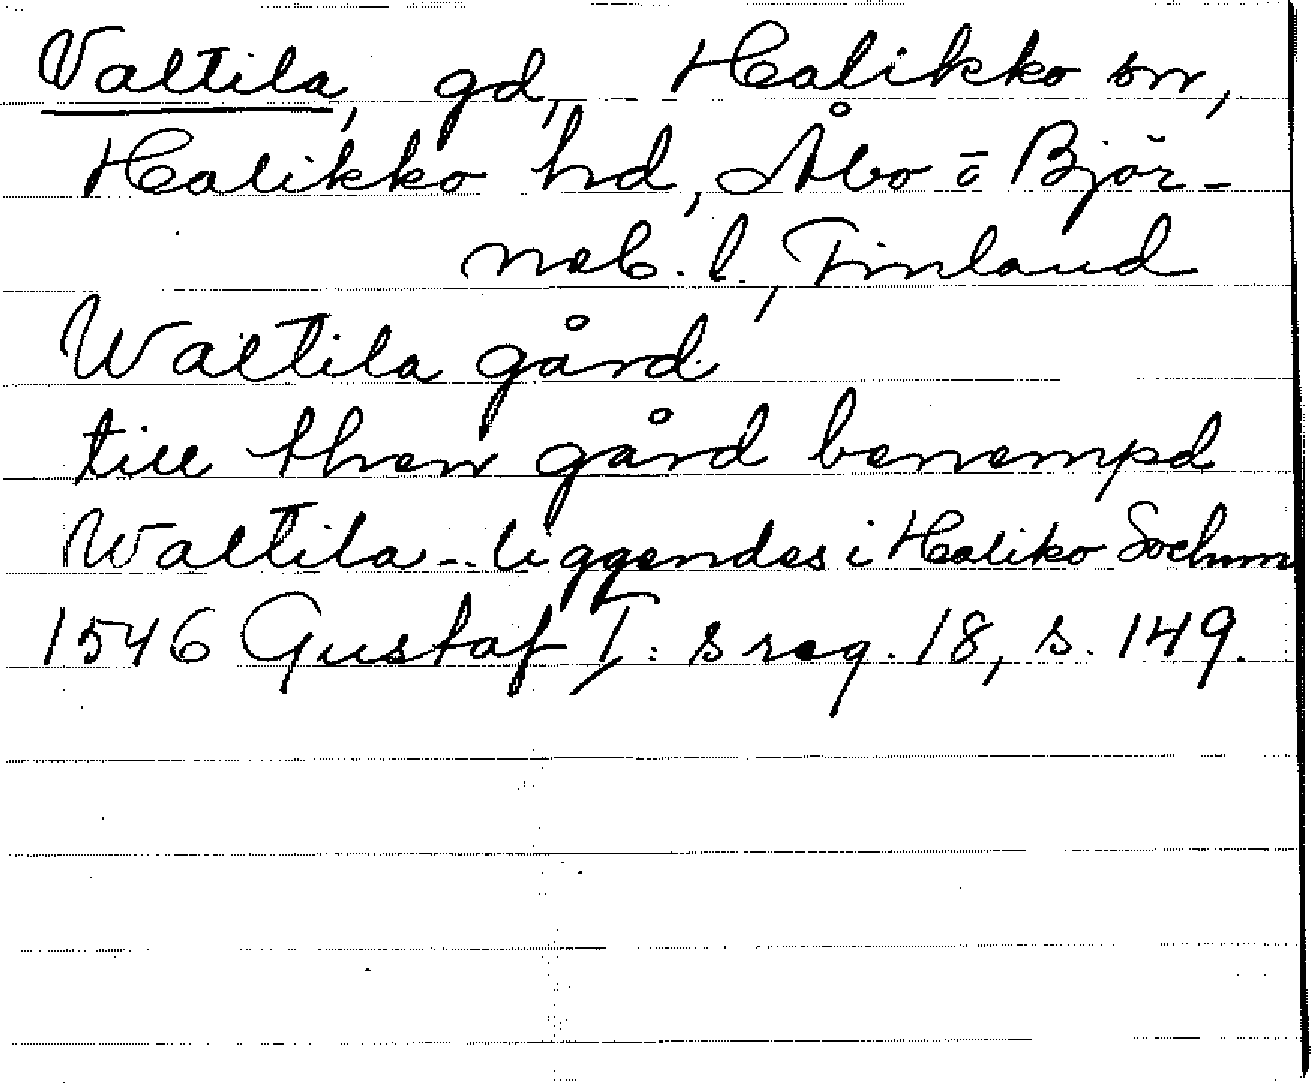 Valtila, gd, Halikko sn,
Halikko hd, Åbo o Björ-
neb. l., Finland
Waltila gård
till then gård benempd
Waltila -- liggendes i Haliko Sochnn
1546 Gustaf I: s reg. 18, s. 149.